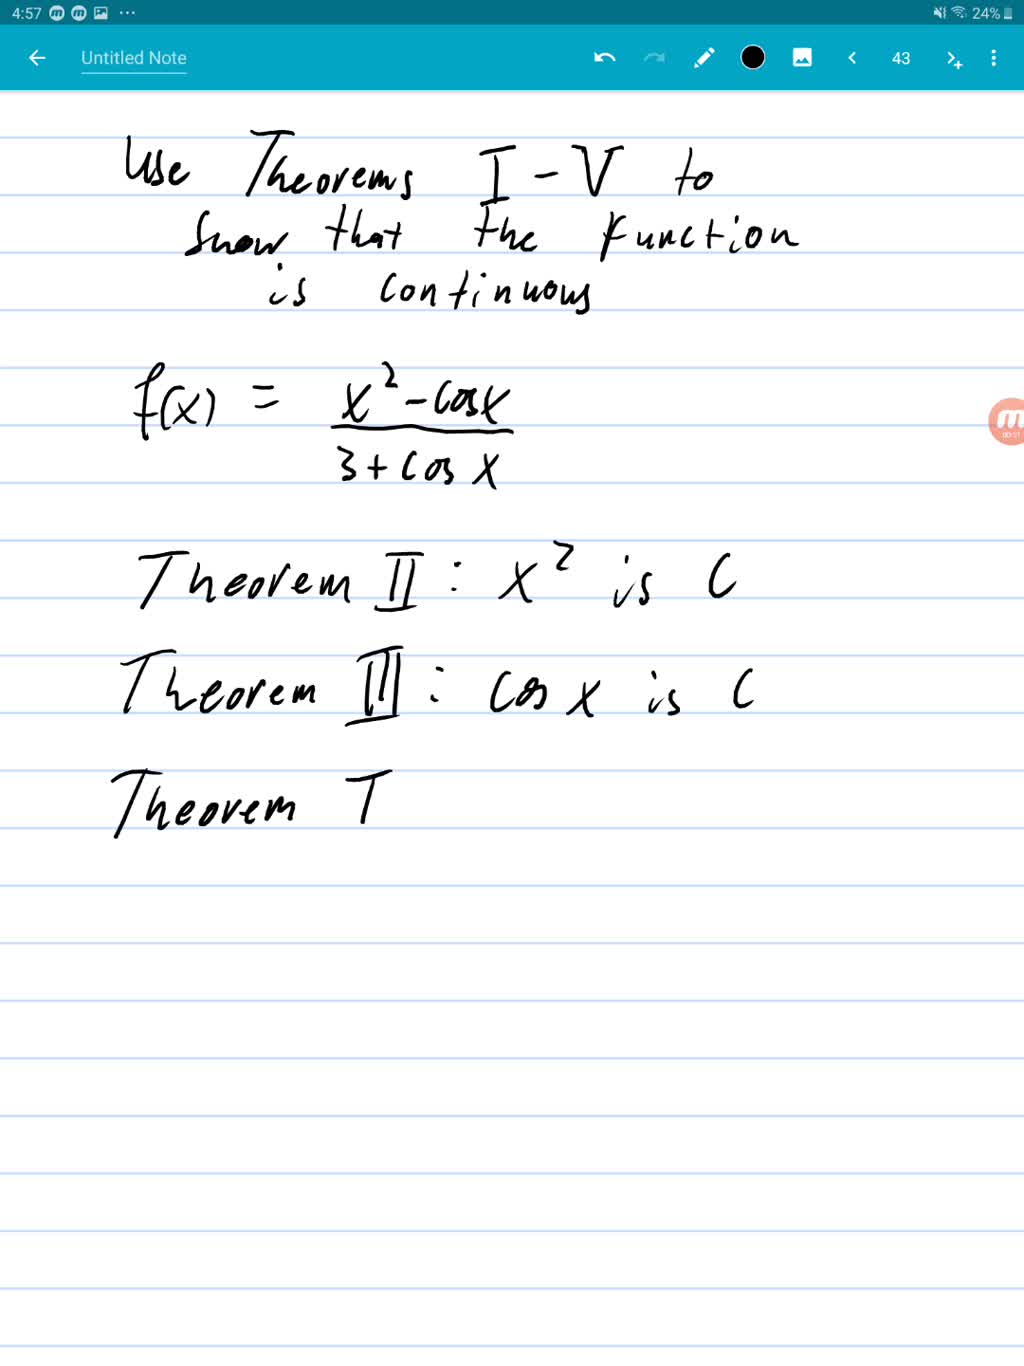 4:57
24%
Untitled Note
43
Use Theorems I - V to
show that the function
is continuous
f(x) = x² - cos x / 3 + cos x
Theorem II : x² is C
Theorem III : cos x is C
Theorem T
m